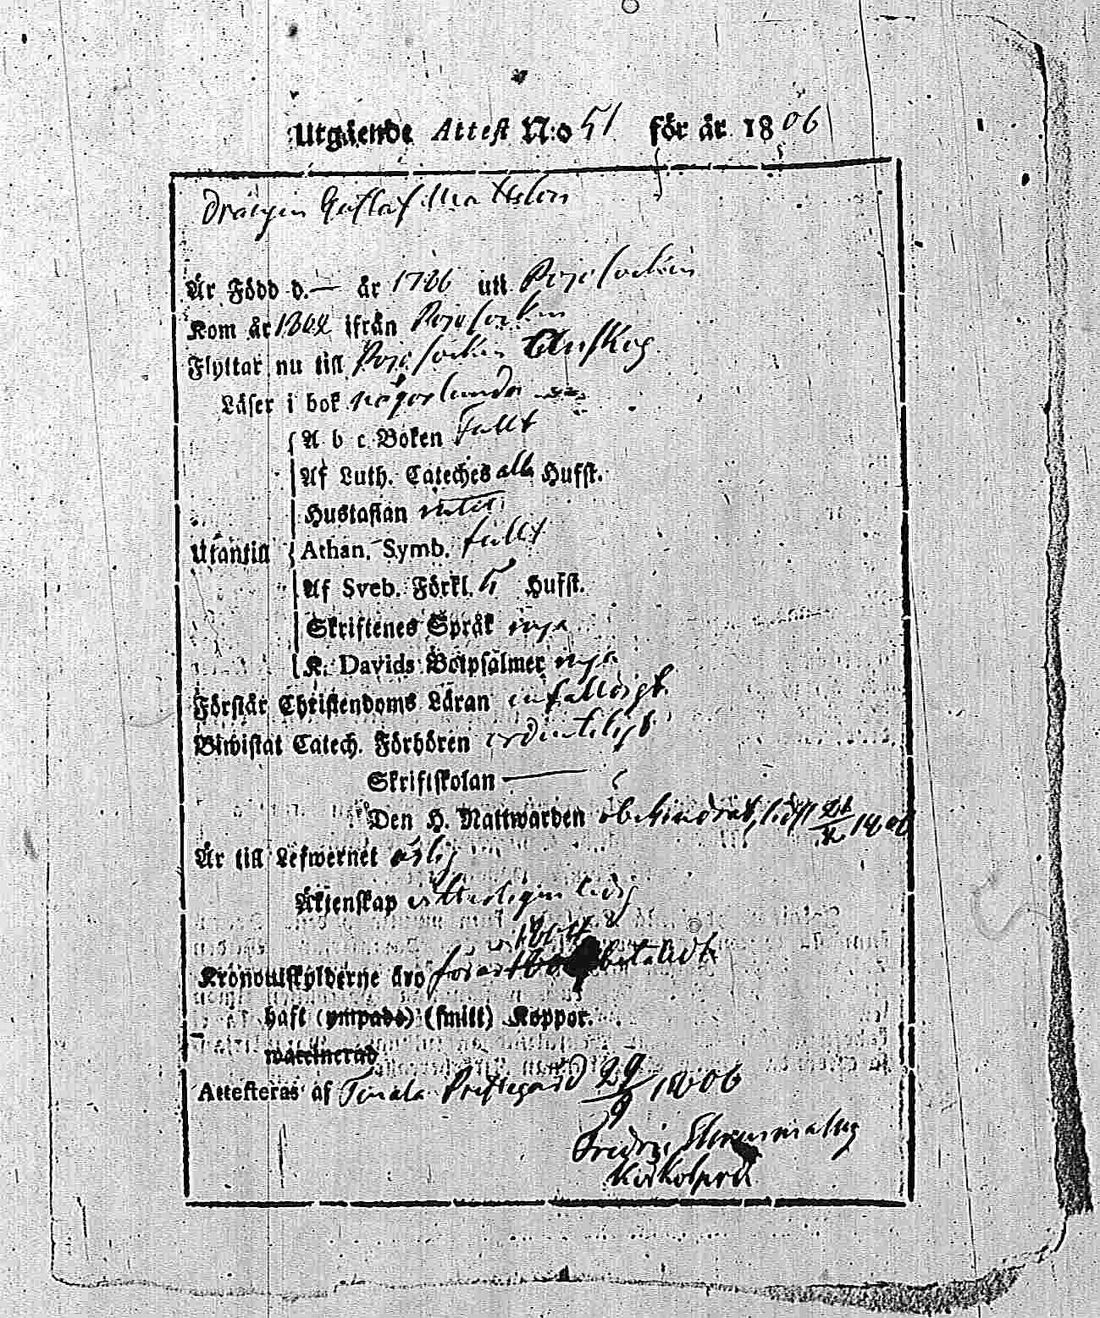 Utgående Attest N:o 51 för år 1806
Drängen Gustaf Mattsson
Är Född d. — år 1786 uti Pojo Socken
Kom år 1802 ifrån Pojo Socken
Flyttar nu till Pojo Socken
Läser i bok någorlunda
A b c Boken Fullt
Af Luth. Cateches alla Hufst.
Hustaflan
Utantill
Athan. Symb. fullt
Af Sveb. Förkl. 5 Hufst.
Skriftenes Språk inga
K. Davids Botpsalmer inga
Förstår Christendoms Läran enfalldigt
Biwistat Catech. Förhören ordenteligt
Skriftskolan —
Den H. Nattwarden obehindrat, sidst 1806
Är till Lefwernet ärlig
Äktenskap witterligen ledig
Kronoutskylderne äro för betaladt
haft (ympade) (smitt) Koppor.
waccinerad
Attesteras af Tenala Prestegård 29/9 1806
Fredric Ehrnmalm
Kyrkoherde